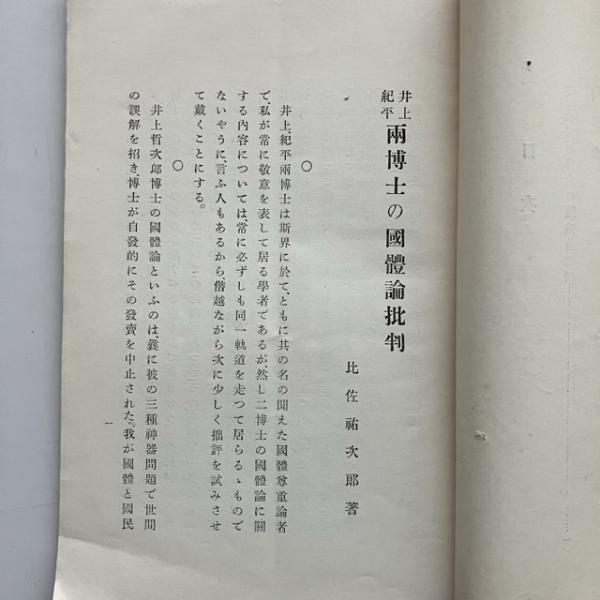 井上
紀平
兩博士の國體論批判
比佐祐次郎著
○
井上、紀平兩博士は斯界に於て、ともに其の名の聞えた國體尊重論者
で、私が常に敬意を表して居る學者であるが、然し二博士の國體論に關
する內容については、常に必ずしも同一軌道を走つて居らるゝもので
ないやうに、言ふ人もあるから僭越ながら次に少しく拙評を試みさせ
て戴くことにする。
○
井上哲次郎博士の國體論といふのは、曩に彼の三種神器問題で世間
の誤解を招き博士が自發的にその發賣を中止された。『我が國體と國民
一
目次